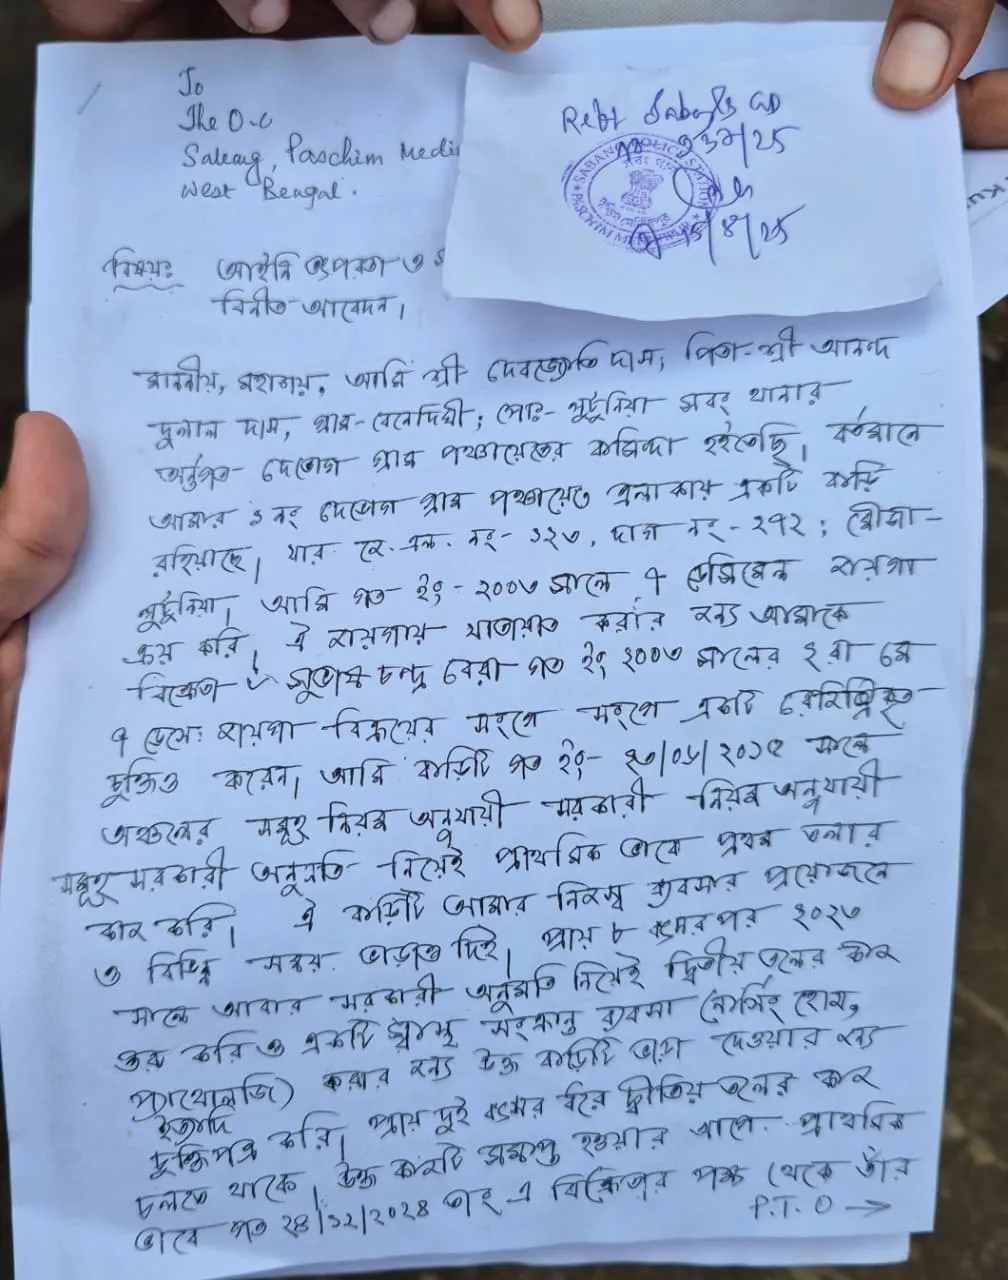 To
The O.C
Sabang, Paschim Medi
West Bengal.
Sabang
237/25
SABANG POLICE STATION
PASCHIM MEDINIPUR
15/8/25
বিষয়ঃ আইনি তৎপরতা ও
বিনীত আবেদন।
মাননীয়, মহাশয়, আমি শ্রী দেবজ্যোতি দাস, পিতা-শ্রী আনন্দ
দুলাল দাস, গ্রাম-বেনেদিঘী; পোঃ- লুটুনিয়া সবং থানার
অর্ন্তগত দেভোগ গ্রাম পঞ্চায়েতের বাসিন্দা হইতেছি। বর্তমানে
আমার ১ নং দেভোগ গ্রাম পঞ্চায়েত এলাকায় একটি বাড়ি
রহিয়াছে। যার জে. এল. নং- ১২৩, দাগ নং- ২৭২; মৌজা-
লুটুনিয়া। আমি গত ইং- ২০০৩ সালে ৭ ডেসিমেল জায়গা
ক্রয় করি। ঐ জায়গায় যাতায়াত করার জন্য আমাকে
বিক্রেতা সুভাষ চন্দ্র বেরা গত ইং ২০০৩ সালের ২রা মে
৭ ডেসিঃ জায়গা বিক্রয়ের সংগে সংগে একটি রেজিস্ট্রিকৃত
চুক্তিও করেন। আমি বাড়িটি গত ইং- /০৬/২০১৫ সালে
অঞ্চলের সমূহ নিয়ম অনুযায়ী সরকারী নিয়ম অনুযায়ী
সমূহ সরকারী অনুমতি নিয়েই প্রাথমিক ভাবে প্রথম তলার
কাজ করি। ঐ বাড়িটি আমার নিজস্ব ব্যবসার প্রয়োজনে
ও বিভিন্ন সময় ভাড়াও দিই। প্রায় ৮ বৎসর পর ২০২৩
সালে আবার সরকারী অনুমতি নিয়েই দ্বিতীয় তলের কাজ
শুরু করি ও একটি স্বাস্থ্য সংক্রান্ত ব্যবসা (নার্সিং হোম,
প্যাথোলজি) করার জন্য উক্ত বাড়িটি ভাড়া দেওয়ার জন্য
ইত্যাদি
চুক্তিপত্র করি। প্রায় দুই বৎসর ধরে দ্বিতীয় তলের কাজ
চলতে থাকে। উক্ত কাজটি সমাপ্ত হওয়ার আগে প্রাথমিক
ভাবে গত ২৪/১২/২০২৪ তাং এ বিক্রেতার পক্ষ থেকে তাঁর
P.T.O →